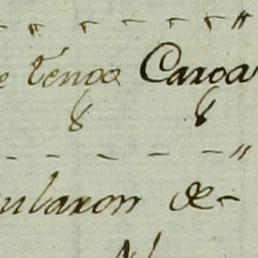 e tengo Caroa
8 8
ularon de-